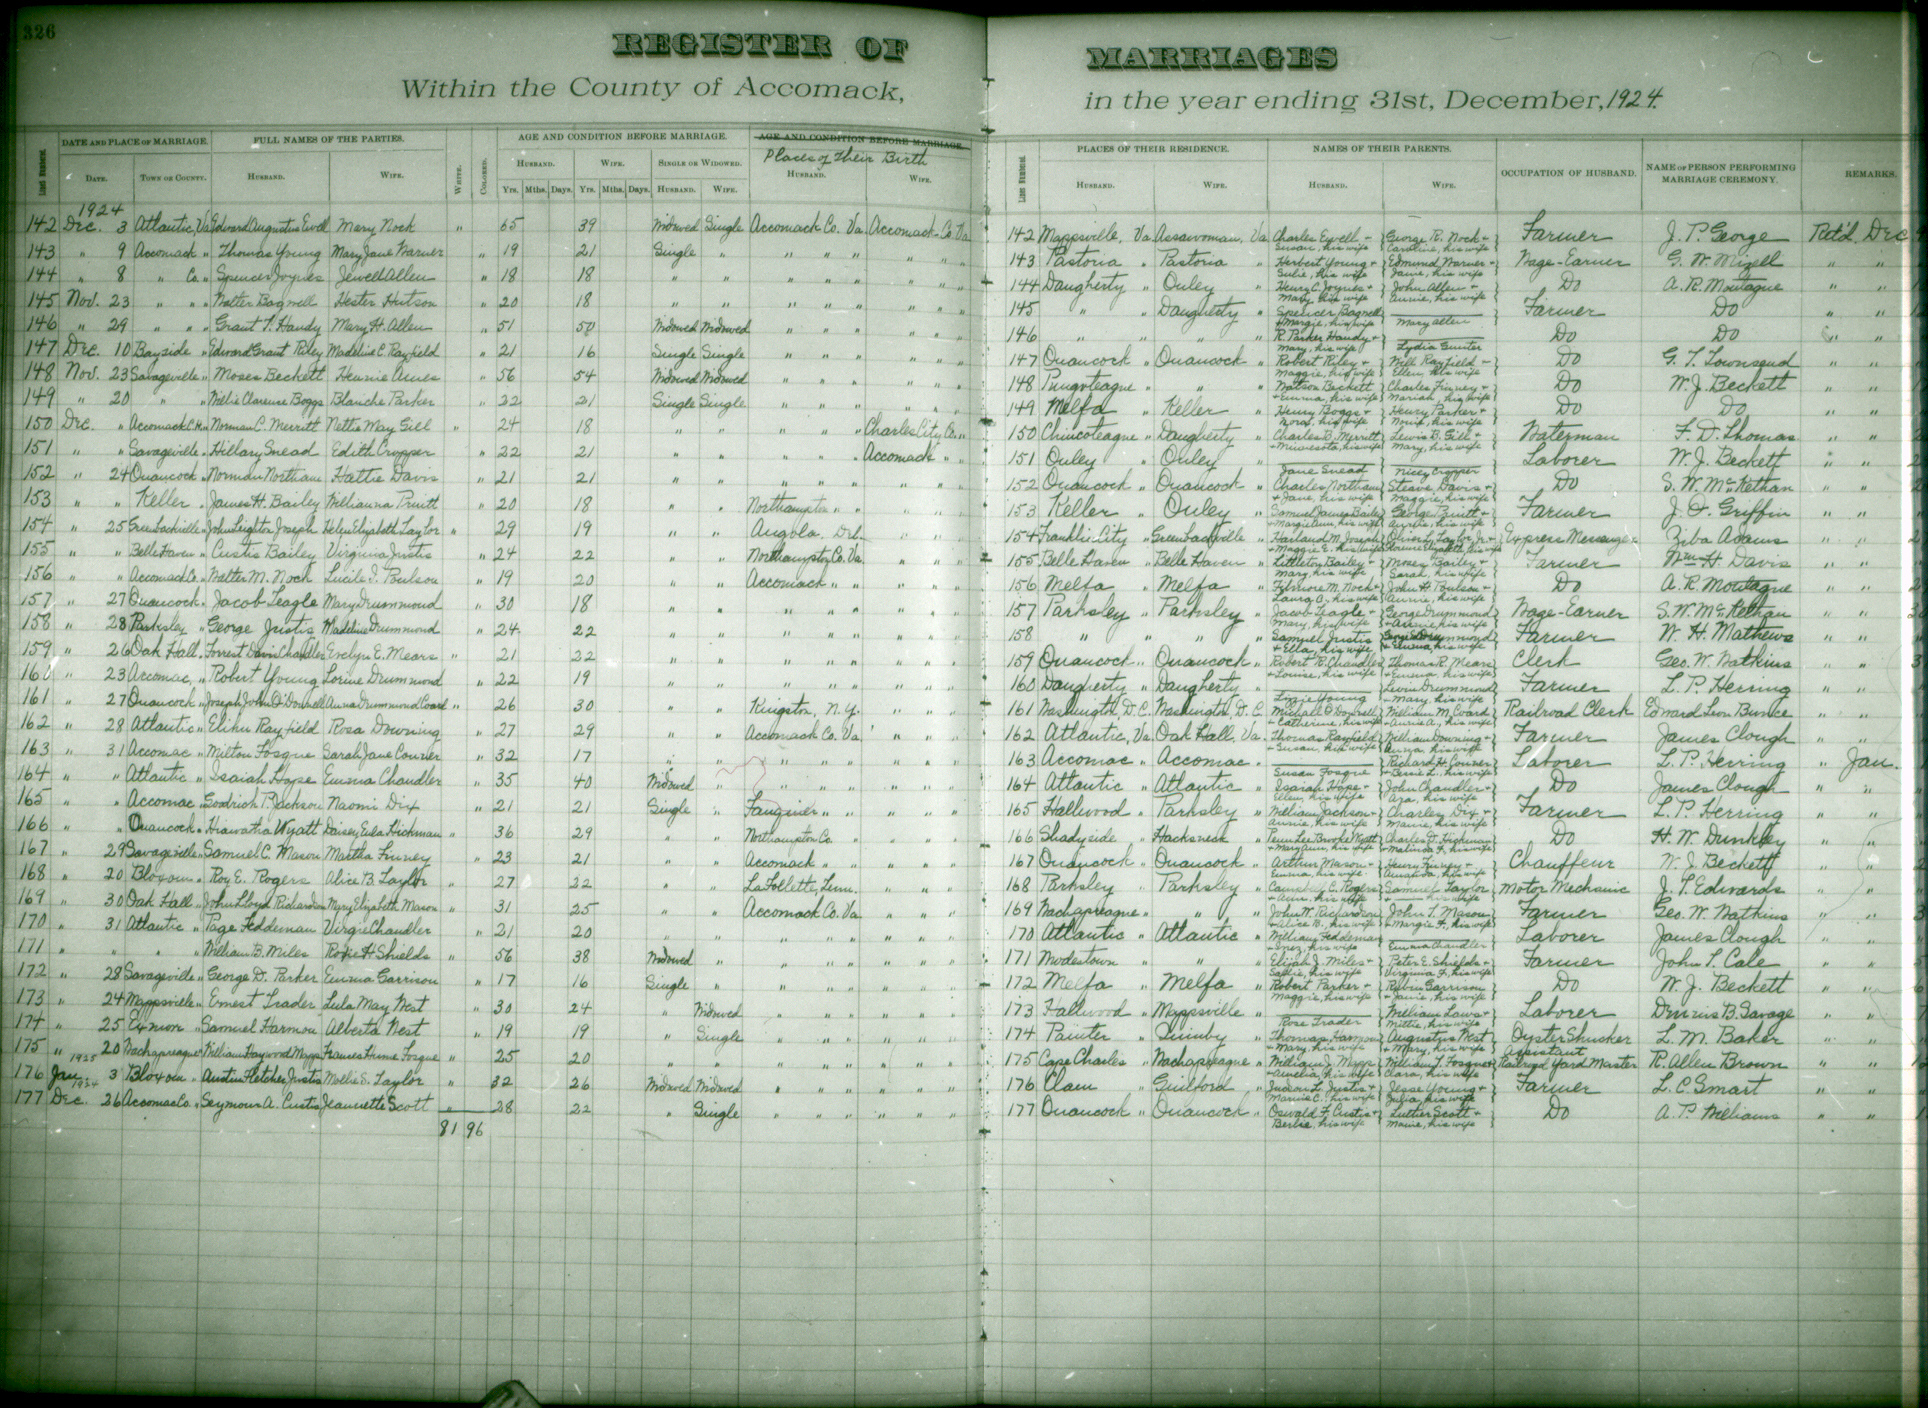 326
REGISTER OF MARRIAGES
Within the County of Accomack, in the year ending 31st, December, 1924.
DATE AND PLACE OF MARRIAGE. FULL NAMES OF THE PARTIES. AGE AND CONDITION BEFORE MARRIAGE. AGE AND CONDITION BEFORE MARRIAGE.
Places of Their Birth
Line Number. DATE. TOWN OR COUNTY. HUSBAND. WIFE. WHITE. COLORED. HUSBAND. WIFE. SINGLE OR WIDOWED. HUSBAND. WIFE.
Yrs. Mths. Days. Yrs. Mths. Days. HUSBAND. WIFE.
1924
142 Dec. 3 Atlantic, Va Edward Augustus Ewell Mary Nock " 65 39 Widowed Single Accomack Co. Va. Accomack Co. Va
143 " 9 Accomack " Thomas Young Mary Jane Warner " 19 21 Single " " " " " " "
144 " 8 " Co. " Spencer Joynes Jewell Allen " 18 18 " " " " " " " "
145 Nov. 23 " " " Walter Bagwell Hester Hutson " 20 18 " " " " " " " "
146 " 29 " " " Grant T. Handy Mary H. Allen " 51 50 Widowed Widowed " " " " " "
147 Dec. 10 Bayside " Edward Grant Riley Madeline C. Rayfield " 21 16 Single Single " " " " " "
148 Nov. 23 Savageville " Moses Beckett Hennie Ames " 56 54 Widowed Widowed " " " " " "
149 " 20 " " Willie Clarence Boggs Blanche Parker " 22 21 Single Single " " " " " "
150 Dec. " Accomack C.H. " Norman C. Merritt Nettie May Gill " 24 18 " " " " " Charles City Co. "
151 " " Savageville " Hillary Snead Edith Cropper " 22 21 " " " " " Accomack " "
152 " 24 Onancock " Norman Northam Hattie Davis " 21 21 " " " " " " " "
153 " " Keller " James H. Bailey Willianna Pruitt " 20 18 " " Northampton " " " " "
154 " 25 Greenbackville " John Leighton Joseph Helen Elizabeth Taylor " 29 19 " " Angola, Del. " " "
155 " " Belle Haven " Custis Bailey Virginia Justis " 24 22 " " Northampton Co. Va. " " "
156 " " Accomack Co. " Walter M. Nock Lucile J. Poulson " 19 20 " " Accomack " " " " "
157 " 27 Onancock " Jacob Teagle Mary Drummond " 30 18 " " " " " " " "
158 " 28 Parksley " George Justis Madeline Drummond " 24 22 " " " " " " " "
159 " 26 Oak Hall " Forrest Davis Chandler Evelyn E. Mears " 21 22 " " " " " " " "
160 " 23 Accomac, " Robert Young Lorine Drummond " 22 19 " " " " " " " "
161 " 27 Onancock " Joseph John O'Donnell Anna Drummond Coard " 26 30 " " Kingston, N.Y. " " "
162 " 28 Atlantic " Elihu Rayfield Rosa Downing " 27 29 " " Accomack Co. Va. " " "
163 " 31 Accomac " Milton Fosque Sarah Jane Conner " 32 17 " " " " " " " "
164 " " Atlantic " Isaiah Hope Emma Chandler " 35 40 Widowed " " " " " " "
165 " " Accomac " Goodrich P. Jackson Naomi Dix " 21 21 Single " Fauquier " " " " "
166 " " Onancock " Hiawatha Wyatt Daisey Eula Hickman " 36 29 " " Northampton Co. " " "
167 " 29 Savageville " Samuel C. Mason Martha Finney " 23 21 " " Accomack " " " " "
168 " 20 Bloxom " Roy E. Rogers Alice B. Taylor " 27 22 " " LaFollette, Tenn. " " "
169 " 30 Oak Hall " John Lloyd Richardson Mary Elizabeth Mason " 31 25 " " Accomack Co. Va. " " "
170 " 31 Atlantic " Page Feddeman Virgie Chandler " 21 20 " " " " " " " "
171 " " " " William B. Miles Rosie H. Shields " 56 38 Widowed " " " " " " "
172 " 28 Savageville " George D. Parker Emma Garrison " 17 16 Single " " " " " " "
173 " 24 Mappsville " Ernest Trader Lula May West " 30 24 " Widowed " " " " " "
174 " 25 Exmore " Samuel Harmon Alberta West " 19 19 " Single " " " " " "
175 " 20 Wachapreague " William Haywood Mapp Frances Hume Fosque " 25 20 " " " " " " " "
1925
176 Jan. 3 Bloxom " Austin Fletcher Justis Mollie S. Taylor " 32 26 Widowed Widowed " " " " " "
1924
177 Dec. 26 Accomac Co. " Seymour A. Custis Jeannette Scott " 28 22 " Single " " " " " "
81 96
PLACES OF THEIR RESIDENCE. NAMES OF THEIR PARENTS. OCCUPATION OF HUSBAND. NAME OF PERSON PERFORMING MARRIAGE CEREMONY. REMARKS.
Line Number. HUSBAND. WIFE. HUSBAND. WIFE.
142 Mappsville, Va. Assawoman, Va. Charles Ewell + George R. Nock + Farmer J. P. George Ret'd. Dec
Susan, his wife Caroline, his wife
143 Pastoria " Pastoria " Herbert Young + Edmund Warner + Wage-Earner G. W. Mizell " "
his wife Jane, his wife
144 Daugherty " Onley " Henry C. Joynes + John Allen + Do A. R. Montague " "
Mary, his wife Annie, his wife
145 " " Daugherty " Spencer Bagwell Farmer Do " "
+ Margie, his wife Mary Allen
146 " " " " R. Parker Handy + Do Do " "
Mary, his wife Lydia Gunter
147 Onancock " Onancock " Robert Riley + Will Rayfield + Do G. T. Townsend " "
Maggie, his wife Ellen, his wife
148 Pungoteague " " " Watson Beckett Charles Finney + Do W. J. Beckett " "
+ Emma, his wife Mariah, his wife
149 Melfa " Keller " Henry Boggs + Henry Parker + Do Do " "
Nora, his wife his wife
150 Chincoteague " Daugherty " Charles B. Merritt Lewis B. Gill + Waterman F. D. Thomas " "
+ Minnesota, his wife Mary, his wife
151 Onley " Onley " Laborer W. J. Beckett " "
Jane Snead Nicey Cropper
152 Onancock " Onancock " Charles Northam Steave Davis + Do S. W. McKethan " "
+ Jane, his wife Maggie, his wife
153 Keller " Onley " Samuel James Bailey George Pruitt + Farmer J. D. Griffin " "
+ Margie Ann, his wife his wife
154 Franklin City " Greenbackville " Harland M. Joseph Oliver L. Taylor, Jr. + Express Messenger Ziba Adams " "
+ Maggie E., his wife Elizabeth, his wife
155 Belle Haven " Belle Haven " Littleton Bailey + Moses Bailey + Farmer Wm. H. Davis " "
Mary, his wife Sarah, his wife
156 Melfa " Melfa " Filmore M. Nock + John H. Poulson + Do A. R. Montague " "
Laura B., his wife Annie, his wife
157 Parksley " Parksley " Jacob Teagle + George Drummond Wage-Earner S. W. McKethan " "
Mary, his wife + Annie, his wife
158 " " " " Samuel Justis Drummond Farmer W. H. Mathews " "
+ Ella, his wife + Emma, his wife
159 Onancock " Onancock " Robert R. Chandler Thomas R. Mears Clerk Geo. W. Watkins " "
+ Louise, his wife + Emma, his wife
160 Daugherty " Daugherty " Levin Drummond Farmer L. P. Herring " "
Lizzie Young Mary, his wife
161 Washington, D.C. Washington, D.C. Michael O'Donnell William M. Coard Railroad Clerk Edward Leon Bunce " "
+ Catherine, his wife + Annie A., his wife
162 Atlantic, Va. Oak Hall, Va. Thomas Rayfield William Downing + Farmer James Clough " "
+ Susan, his wife Anna, his wife
163 Accomac " Accomac " Richard H. Conner Laborer L. P. Herring " Jan.
Susan Fosque + Bessie L., his wife
164 Atlantic " Atlantic " Isaiah Hope + John Chandler + Do James Clough " "
Ellen, his wife his wife
165 Hallwood " Parksley " William Jackson + Charles Dix + Farmer L. P. Herring " "
Annie, his wife Mamie, his wife
166 Shadyside " Hacksneck " Penn Lee Brooks Wyatt Charles D. Hickman Do H. W. Dunkley " "
+ Mary Ann, his wife + Malinda F., his wife
167 Onancock " Onancock " Arthur Mason + Henry Finney + Chauffeur W. J. Beckett " "
Emma, his wife Amanda, his wife
168 Parksley " Parksley " Campbell C. Rogers Samuel Taylor Motor Mechanic J. T. Edwards " "
+ Ann, his wife + his wife
169 Wachapreague " " " John W. Richardson John T. Mason Farmer Geo. W. Watkins " "
+ Alice B., his wife + Margie F., his wife
170 Atlantic " Atlantic " William Feddeman Laborer James Clough " "
+ Inez, his wife Emma Chandler
171 Modestown " " " Elijah J. Miles + Peter E. Shields + Farmer John T. Cale " "
Sallie, his wife Virginia F., his wife
172 Melfa " Melfa " Robert Parker + Rubin Garrison Do W. J. Beckett " "
Maggie, his wife + Janie, his wife
173 Hallwood " Mappsville " William Laws + Laborer B. Savage " "
Rose Trader Mittie, his wife
174 Painter " Quinby " Thomas Harmon Augustus West Oyster Shucker L. M. Baker " "
+ Mary, his wife + Mary, his wife
175 Cape Charles " Wachapreague " William J. Mapp William J. Fosque + Assistant Railroad Yard Master R. Allen Brown " "
+ Amelia, his wife Clara, his wife
176 Clam " Guilford " Judson L. Justis + Jesse Young + Farmer L. C. Smart " "
Mamie C., his wife Julia, his wife
177 Onancock " Onancock " Oswald F. Custis + Luther Scott + Do A. P. Williams " "
Bertie, his wife Mamie, his wife